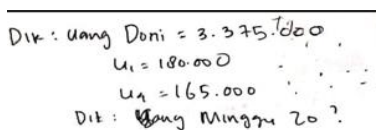 Dik : Uang Doni = 3.375.000
U₁ = 180.000
U₂ = 165.000
Dit : Uang Minggu 20 ?